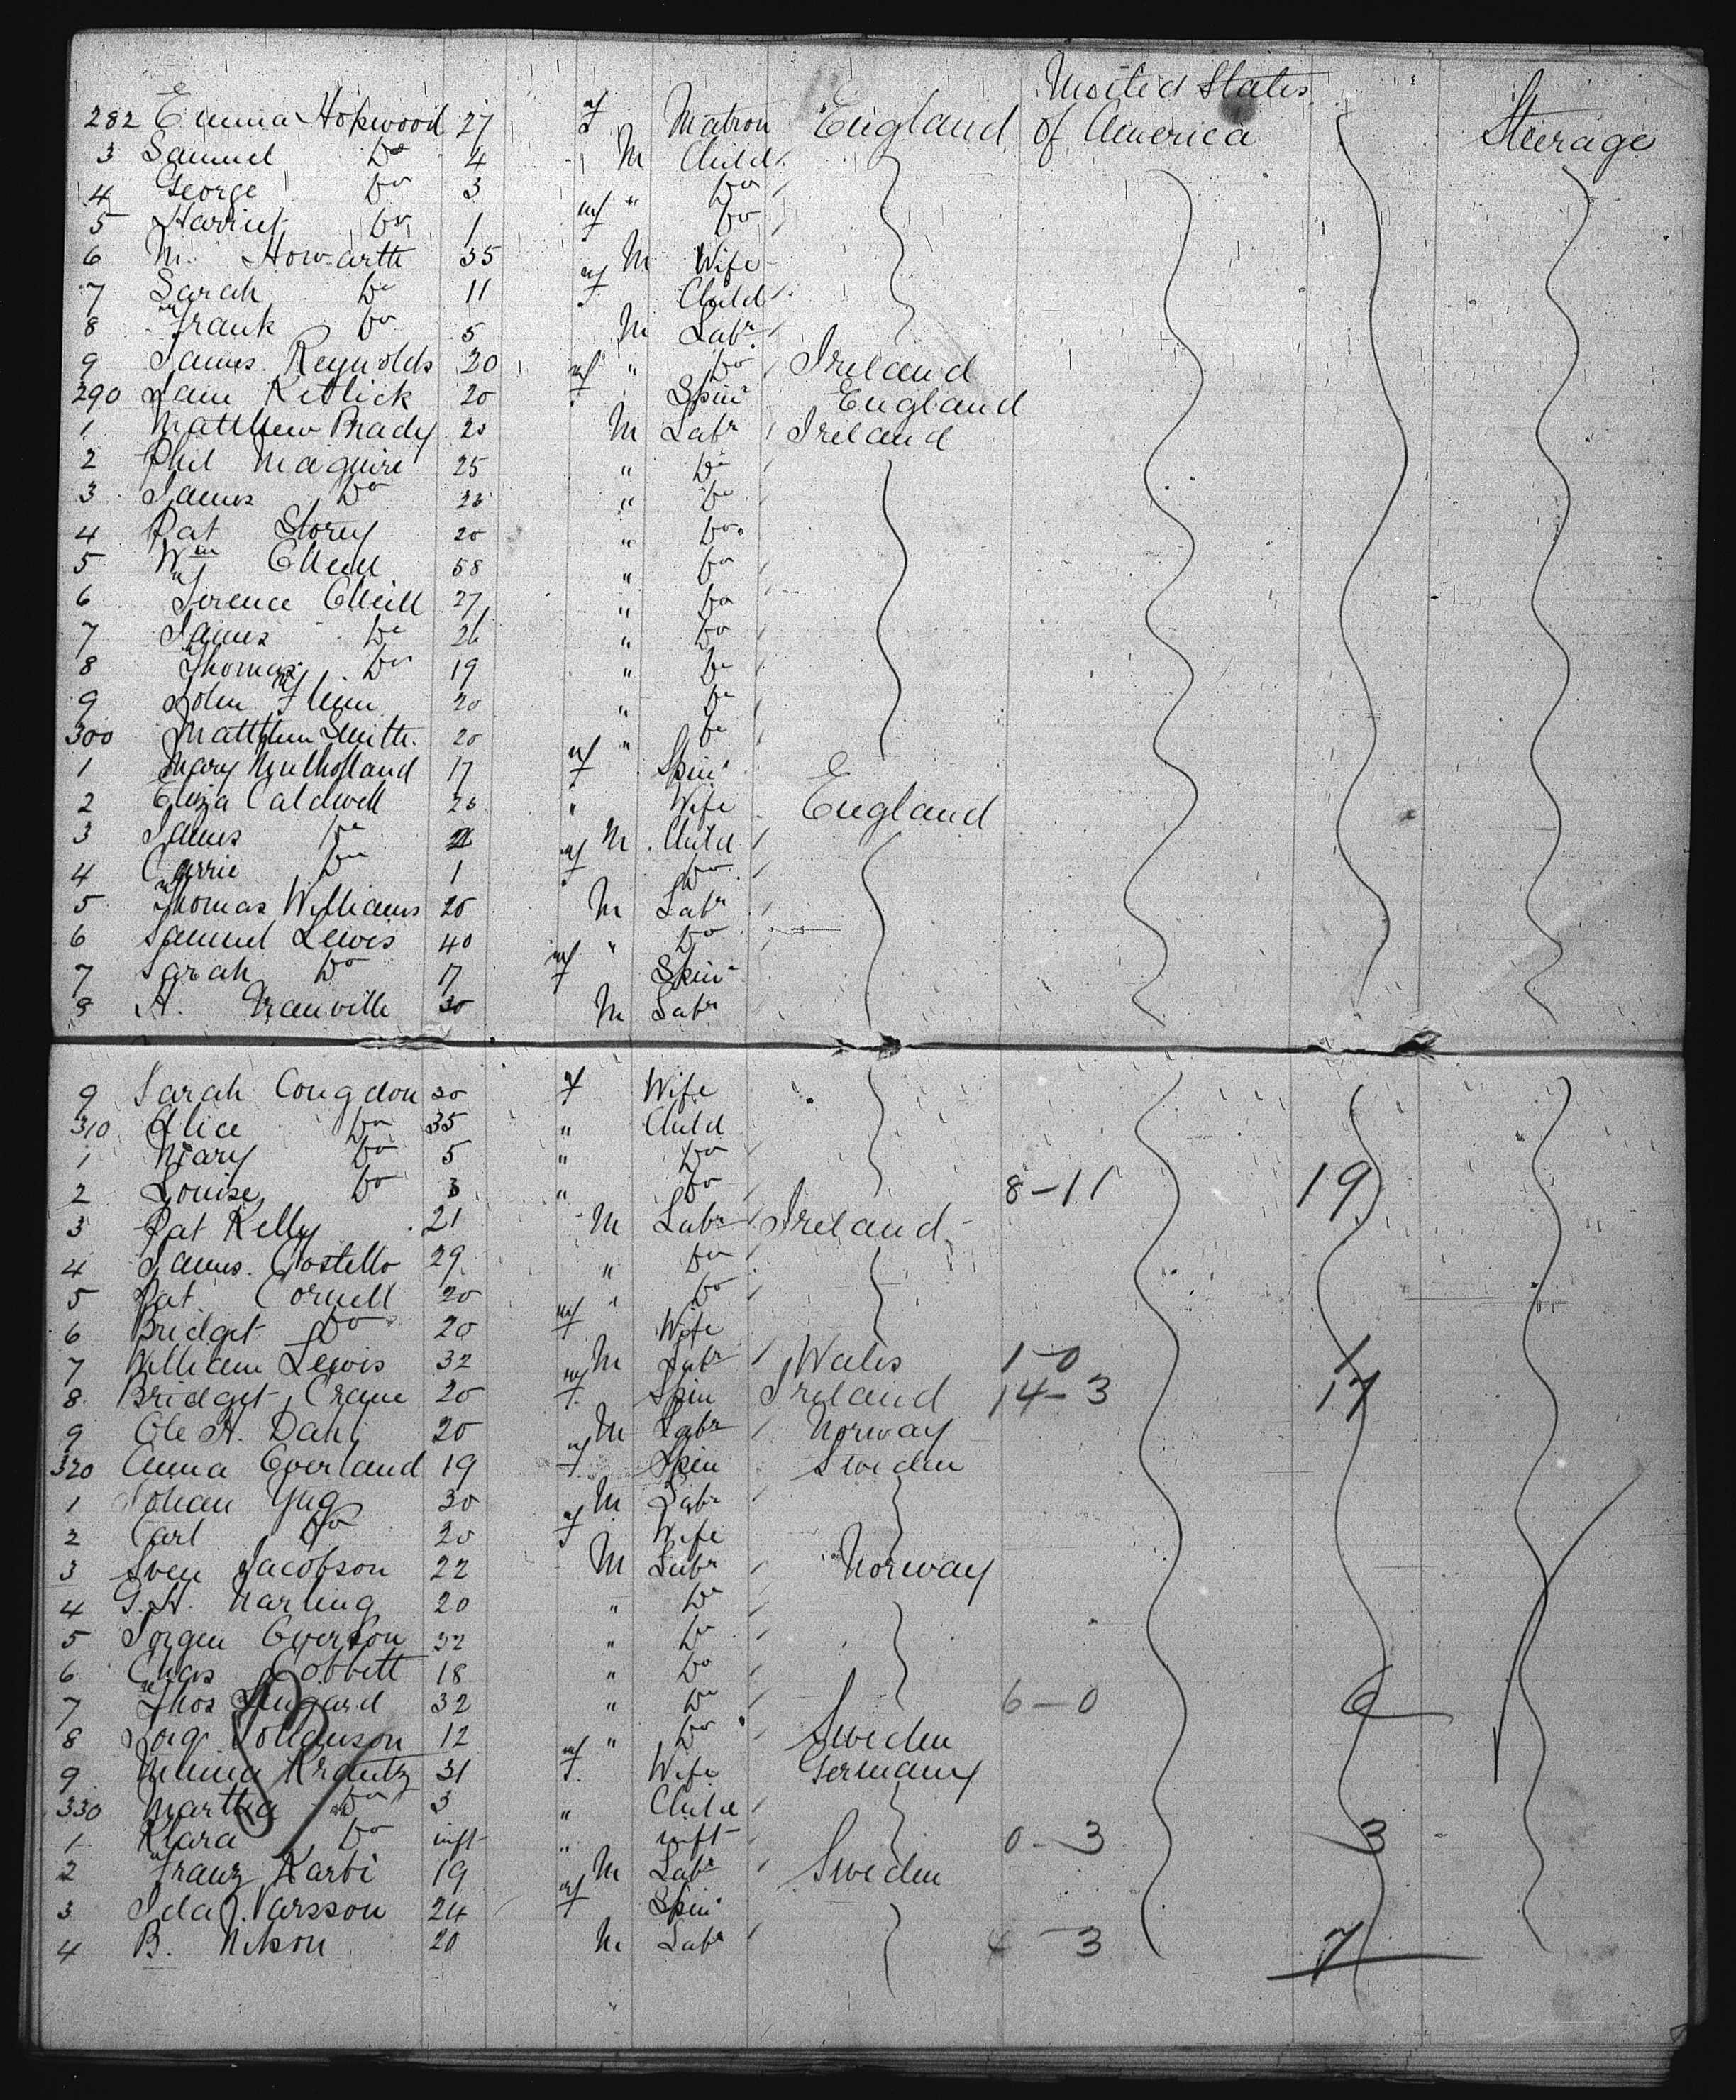 United States
282 Emma Hopwood 27 f Matron England of America Steerage
3 Samuel Do 4 M Child
4 George Do 3 " Do
5 Harriet Do 1 f Do
6 M. Howarth 35 M Wife
7 Sarah Do 11 f Child
8 Frank Do 5 M Labr
9 James Reynolds 20 " Do Ireland
290 Jane 20 f Spinr England
1 Matthew Brady 20 M Labr Ireland
2 Phil Maguire 25 " Do
3 James Do " Do
4 Pat Storey 20 " Do
5 Wm ONeill 58 " Do
6 Terence ONeill 27 " Do
7 James Do 26 " Do
8 Thomas Do 19 " Do
9 John Flinn 20 " Do
300 Matthew Smith 20 " Do
1 Mary Mulholland 17 f Spinr
2 Eliza Caldwell " Wife England
3 James Do M Child
4 Carrie Do 1 f Do
5 Thomas Williams 20 M Labr
6 Samuel Lewis 40 " Do
7 Sarah Do 17 f Spinr
8 A. 30 M Labr
9 Sarah Congdon 30 f Wife
310 Alice Do 35 " Child
1 Mary Do 5 " Do
2 Louise Do 3 " Do 8-11 19
3 Pat Kelly 21 M Labr Ireland
4 James Costello 29 " Do
5 Pat Cornell 20 " Do
6 Bridget Do 20 f Wife
7 William Lewis 32 M Labr Wales 1-0 1
8 Bridget Crane 20 f Spin Ireland 14-3 17
9 Ole A. Dahl 20 M Labr Norway
320 Anna Overland 19 f Spin Sweden
1 Johan 30 M Labr
2 Carl Do 20 f Wife
3 Sven Jacobson 22 M Labr Norway
4 20 " Do
5 Jorgen Everson 32 " Do
6 Chas Cobbett 18 " Do
7 Thos 32 " Do 6-0 6
8 12 " Do Sweden
9 Minna Krantz 31 f Wife Germany
330 Martha Do 3 " Child
1 Klara Do inft " inft 0-3 3
2 Franz Karbi 19 M Labr Sweden
3 Ida Larsson 24 f Spinr
4 B. Nelson 20 M Labr 4-3 7